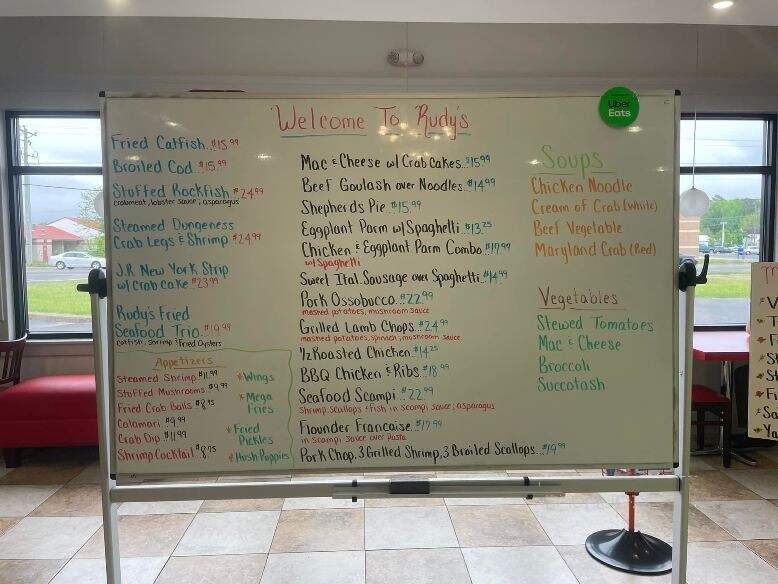 Welcome To Rudy's
Uber
Eats
Fried Catfish..$15.99
Broiled Cod..$15.99
Stuffed Rockfish.$24.99
crabmeat, lobster sauce, asparagus
Steamed Dungeness
Crab Legs & Shrimp.$24.99
J.R. New York Strip
w/ Crab Cake $23.99
Rudy's Fried
Seafood Trio.$19.99
catfish, shrimp & Fried Oysters
Appetizers
Steamed Shrimp $11.99
Stuffed Mushrooms $9.99
Fried Crab Balls $8.75
Calamari $9.99
Crab Dip $11.99
Shrimp Cocktail $8.75
*Wings
*Mega
Fries
*Fried
Pickles
*Hush Puppies
Mac & Cheese w/ Crab Cakes..$15.99
Beef Goulash over Noodles..$14.99
Shepherds Pie..$15.99
Eggplant Parm w/ Spaghetti..$13.25
Chicken & Eggplant Parm Combo..$17.99
w/ Spaghetti
Sweet Ital. Sausage over Spaghetti..$14.99
Pork Ossobucco..$22.99
mashed potatoes, mushroom sauce
Grilled Lamb Chops..$24.99
mashed potatoes, spinach, mushroom sauce
1/2 Roasted Chicken..$14.25
BBQ Chicken & Ribs..$18.99
Seafood Scampi..$22.99
shrimp scallops & fish in scampi sauce, asparagus
Flounder Francaise..$17.99
in scampi sauce over pasta
Pork Chop, 3 Grilled Shrimp, 3 Broiled Scallops..$19.99
Soups
Chicken Noodle
Cream of Crab (White)
Beef Vegetable
Maryland Crab (Red)
Vegetables
Stewed Tomatoes
Mac & Cheese
Broccoli
Succotash